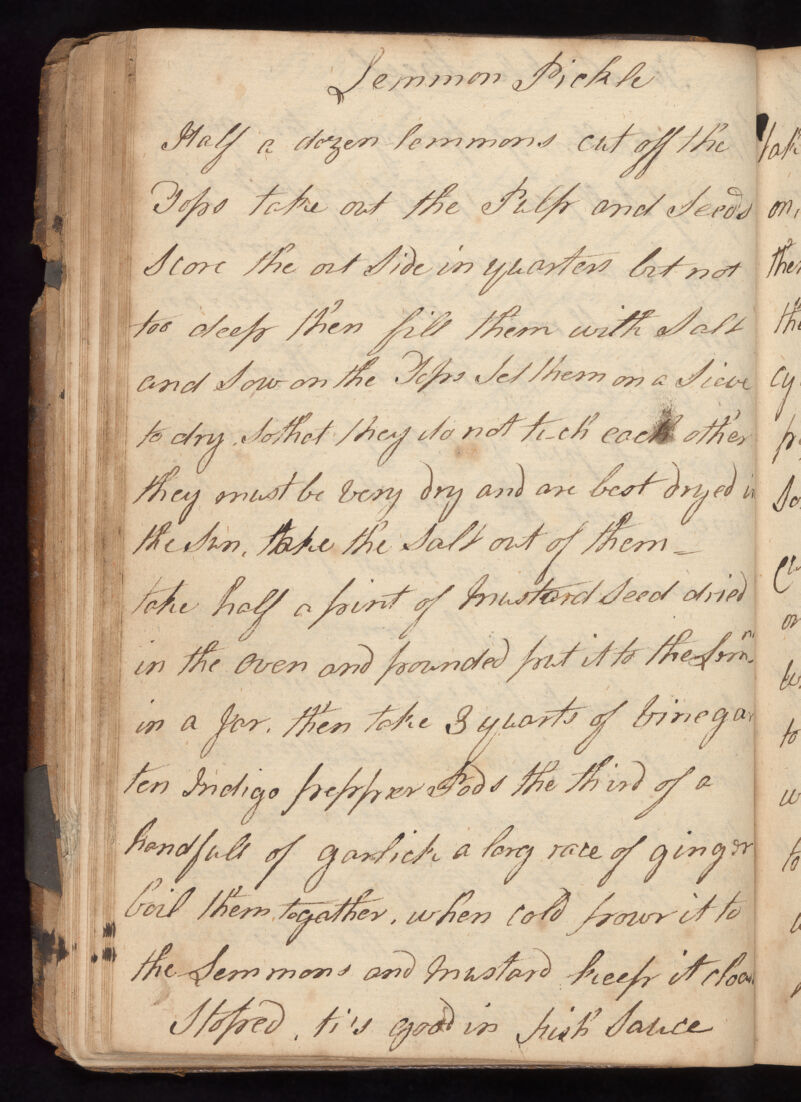 Lemmon Pickle
Half a dozen lemmons cut off the
Tops take out the Pulp and Seeds
Score the out Side in quarters but not
too deep then fill them with Salt
and Sow on the Tops Set them on a Sieve
to dry. So that they do not tuch each other
they must be very dry and are best dryed in
the Sun, take the Salt out of them _
take half a pint of Mustard Seed dried
in the Oven and pounded put it to the Lemns
in a Jar. then take 3 quarts of Vinegar
ten Indigo pepper Pods the third of a
handfull of garlick a larg race of ginger
boil them together. when cold powr it to
the Lemmons and Mustard keep it
Stoped. ti's good in Fish Sauce